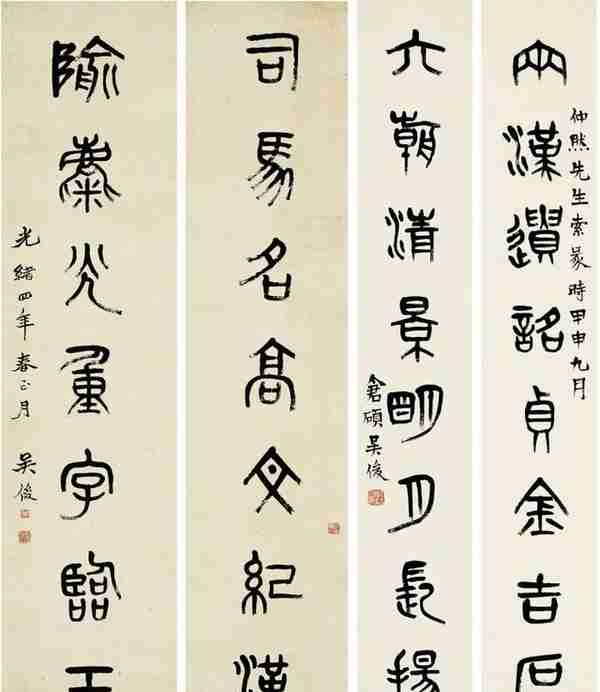 仲熙先生索篆時甲申九月
兩漢遺銘貞金吉石
六朝清景朙月長揚
倉碩吳俊
司馬名高文紀漢
隃麋光重字臨王
光緒四年春正月 吳俊